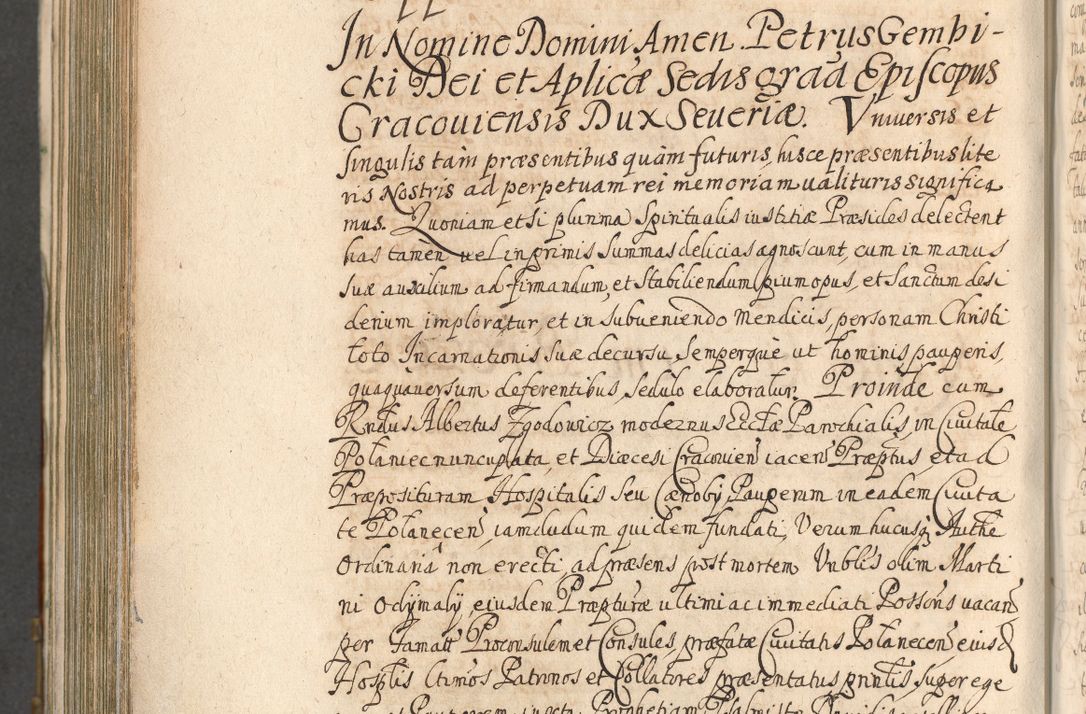 In Nomine Domini Amen. Petrus Gembi-
cki Dei et Aplicæ Sedis graã Episcopus
Cracouiensis Dux Seueriæ. Vniuersis et
singulis tam præsentibus quàm futuris, hisce præsentibus lite
ris Nostris ad perpetuam rei memoriam ualituris significa
mus. Quoniam etsi plurima Spiritualis iustitiæ Præsides delectent
has tamen uel inprimis summas delicias agnoscunt, cum in manus
suæ auxilium ad firmandum, et stabiliendum pium opus, et sanctum desi
derium imploratur, et in subueniendo Mendicis, personam Christi
toto Incarnationis suæ decursu semperque ut hominis pauperis,
quaquauersum deferentibus, sedulo elaboratur. Proinde cum
Rndus Albertus Zgodowicz modernus Ecctæ Parochialis, in Ciuitate
Polaniec nuncupata, et Diæcesi Cracouien iacen Præptus, et ad
Præposituram Hospitalis seu Cænoby Pauperum in eadem Ciuita
te Polanecen iamdudum quidem fundati, Verum hucusq Authe
Ordinaria non erecti, ad præsens post mortem Vnblis olim Marti
ni Odymaly eiusdem Præpturæ ultimi ac immediati Possons uacan
per Famatt Proconsulem et Consules præfatæ Ciuitatis Polanecen eiusd
Hosplis Ltimos Patronos et Collatores præsentatus pnntis super ege